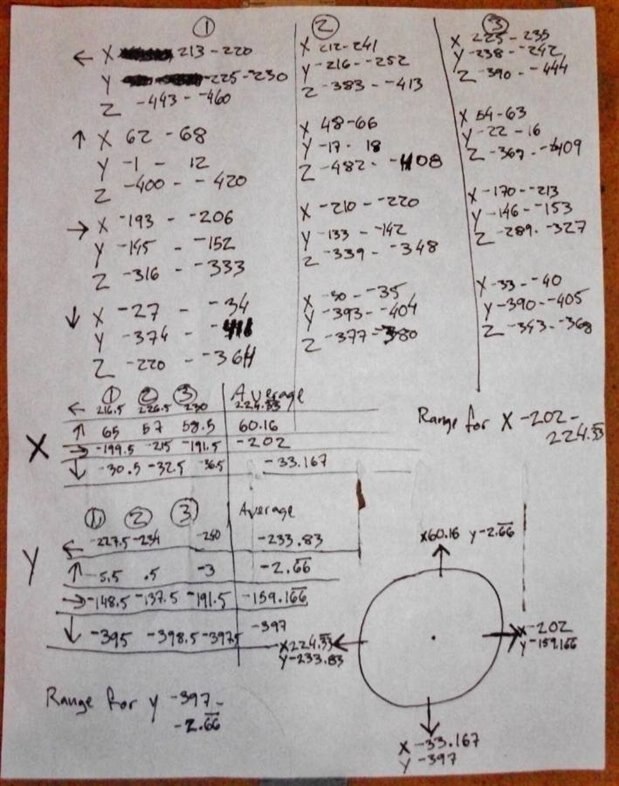 ① ② ③
← X 213 - 220
Y -225 - -230
Z -443 - -460
↑ X 62 - 68
Y -1 - 12
Z -400 - -420
→ X -193 - -206
Y -145 - -152
Z -316 - -333
↓ X -27 - -34
Y -374 -
Z -220 - -364
X 212-241
Y -216 - -252
Z -383 - -413
X 48-66
Y -17 - 18
Z -482 - -408
X -210 - -220
Y -133 - -142
Z -339 - -348
X -30 - -35
Y -393 - -404
Z -377 - -380
X 225-235
Y -238 - -242
Z -390 - -444
X 54-63
Y -22 - 16
Z -367 - -409
X -170 - -213
Y -146 - -153
Z -289 - -327
X -33 - -40
Y -390 - -405
Z -343 - -368
① ② ③ Average
← 216.5 226.5 230 224.33
X
↑ 65 57 58.5 60.16
→ -199.5 -215 -191.5 -202
↓ -30.5 -32.5 -36.5 -33.167
Range for X -202 -
224.33
① ② ③ Average
← -227.5 -234 -240 -233.83
Y
↑ -5.5 .5 -3 -2.66
→ -148.5 -137.5 -191.5 -159.166
↓ -395 -398.5 -397.5 -397
Range for y -397 -
-2.66
X 60.16 y -2.66
X 224.33
Y -233.83
X -202
Y -159.166
X -33.167
Y -397